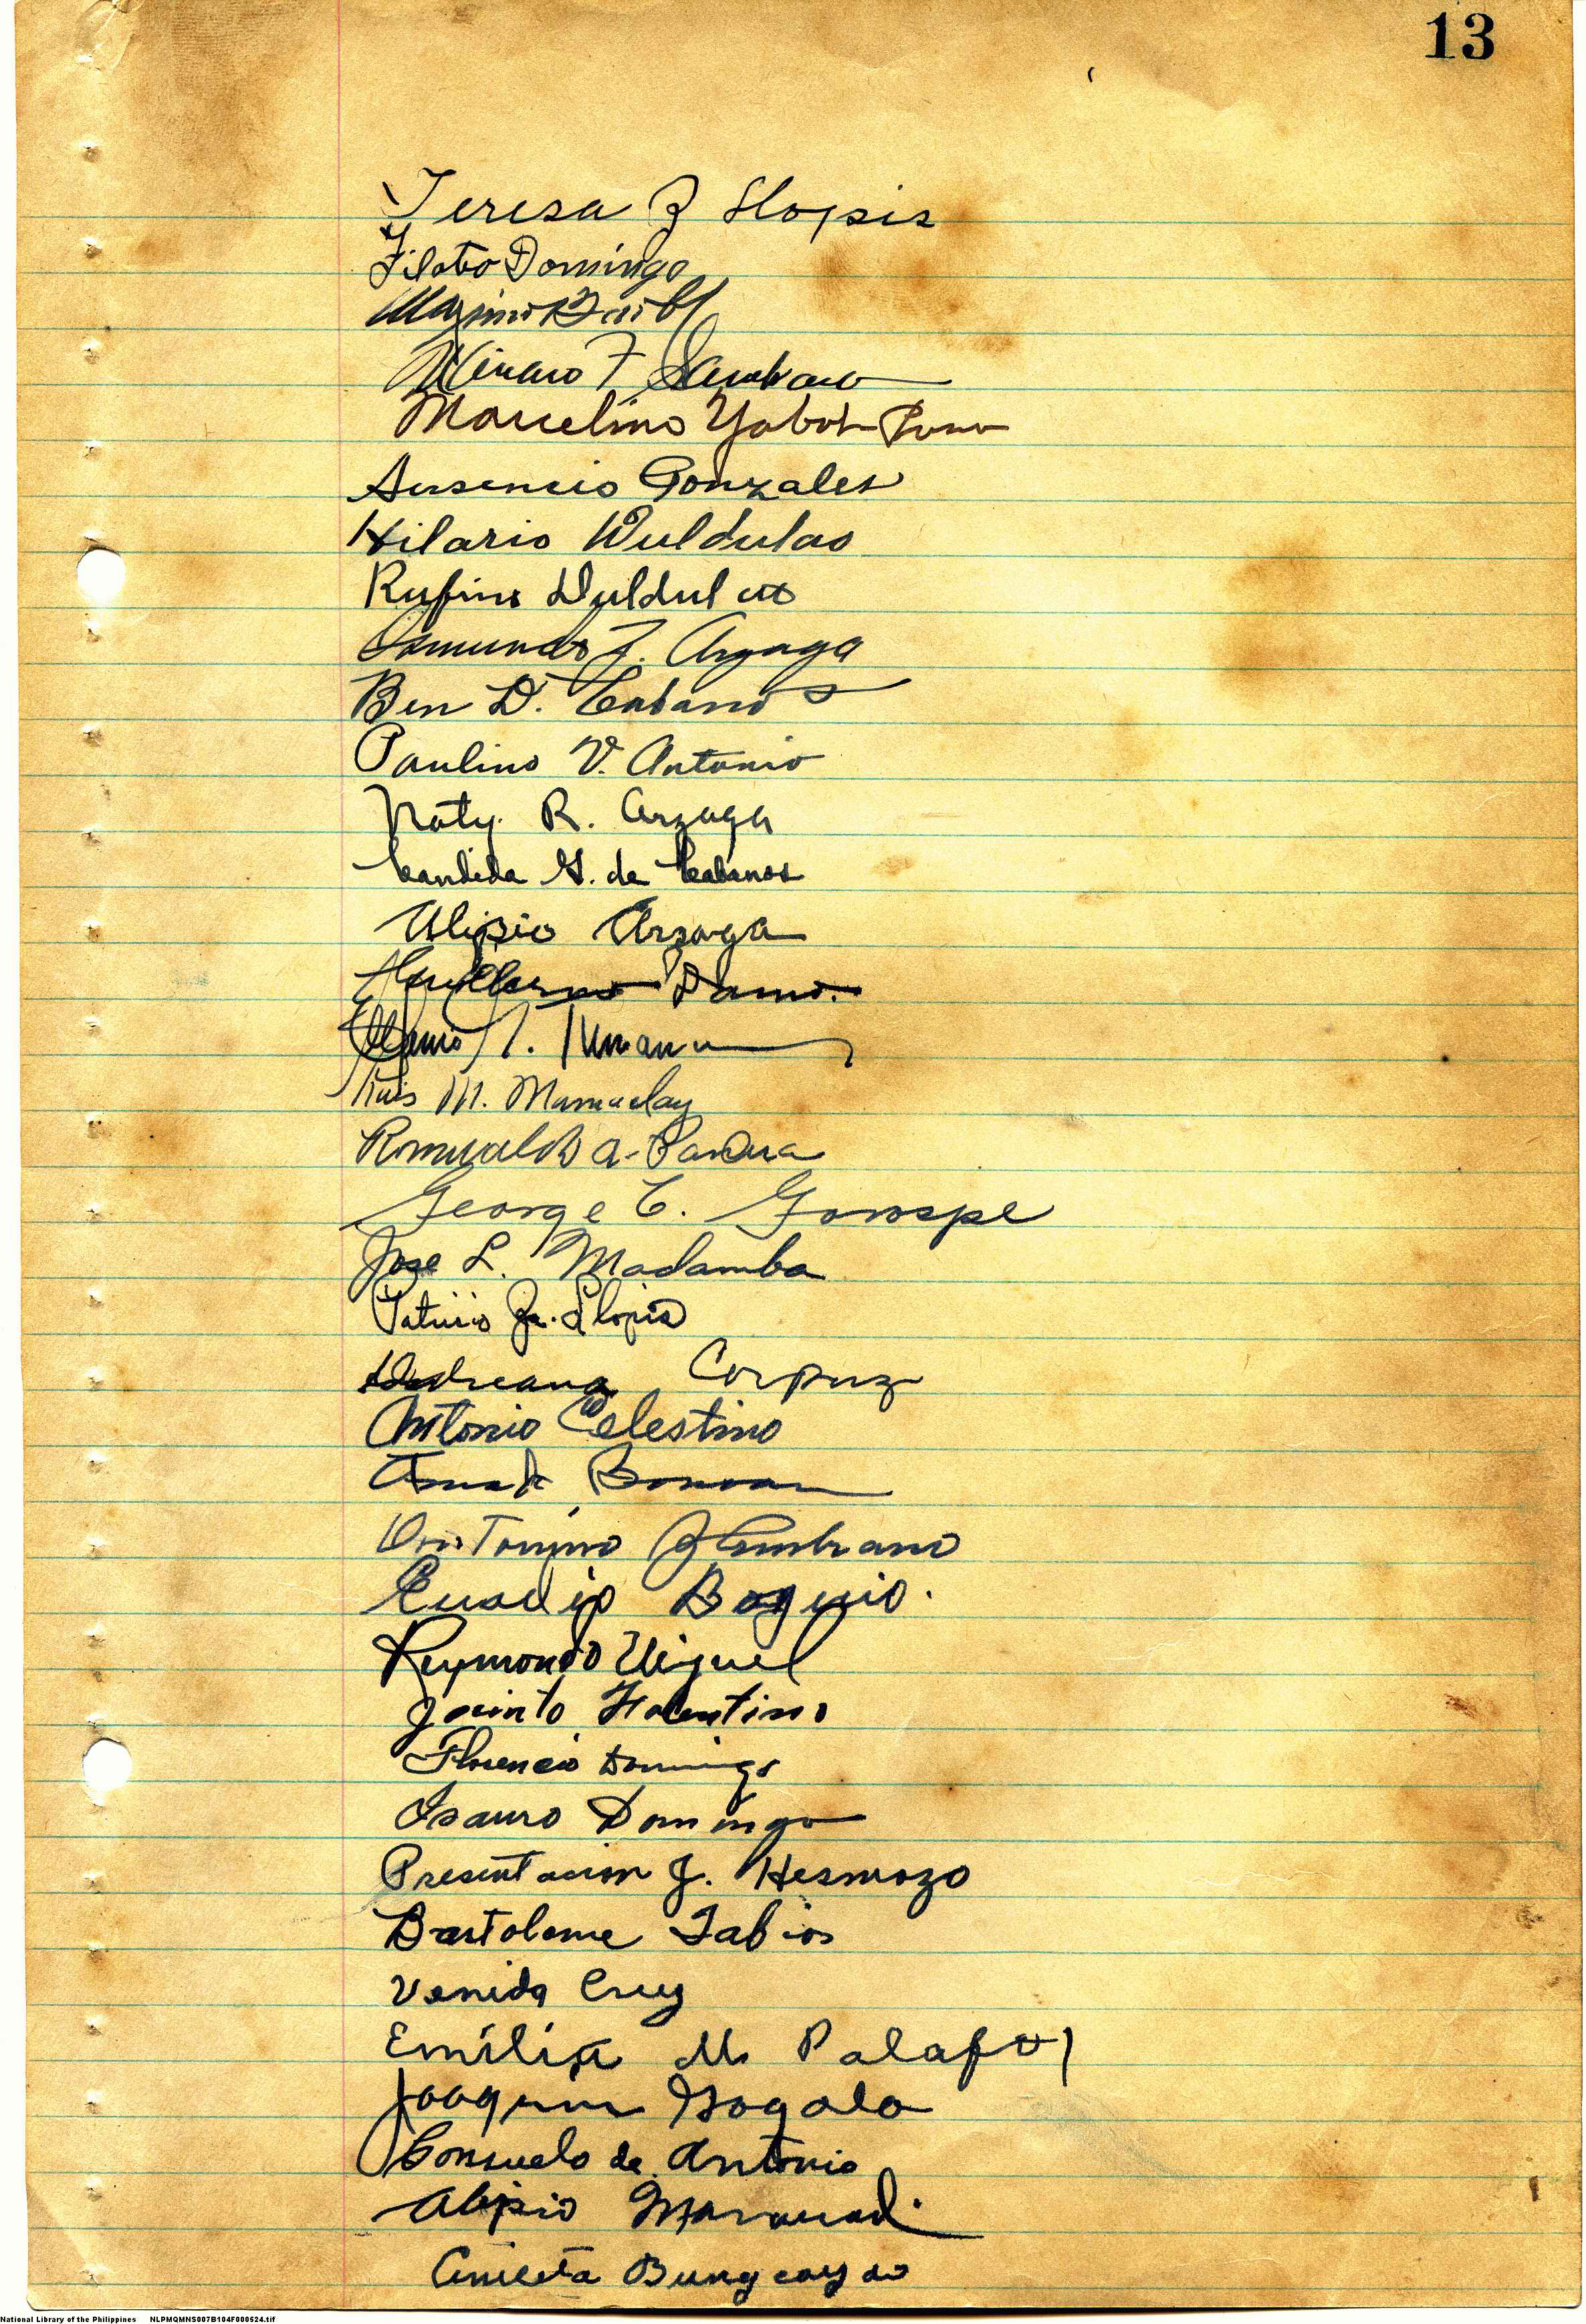 13
Teresa Z Llopis
Domingo
F
Marcelino Yabot
Ausencio Gonzales
Hilario Duldulao
Rufino Duldulao
Osmundo Z. Arzaga
Ben D. Cabanos
Paulino V. Antonio
Naty R. Arzaga
Candida G. de Cabanos
Alipio Arzaga
Guillermo
T. Tumaru
Luis M. Mamuclay
Romualdo A.
George C. Gorospe
Jose L. Madamba
Patricio Jr. Llopis
Andreana Corpuz
Antonio Celestino
Zambrano
Baguio.
Raymondo Miguel
Jacinto Florentino
Florencio Domingo
Isauro Domingo
Presentacion J. Hermozo
Bartolome Fabios
Venida Cruz
Emilia M Palafox
Joaquin Gogola
Consuelo de Antonio
Alipio
Aniceta Bungcayao
National Library of the Philippines NLPMQMNS007B104F000524.tif